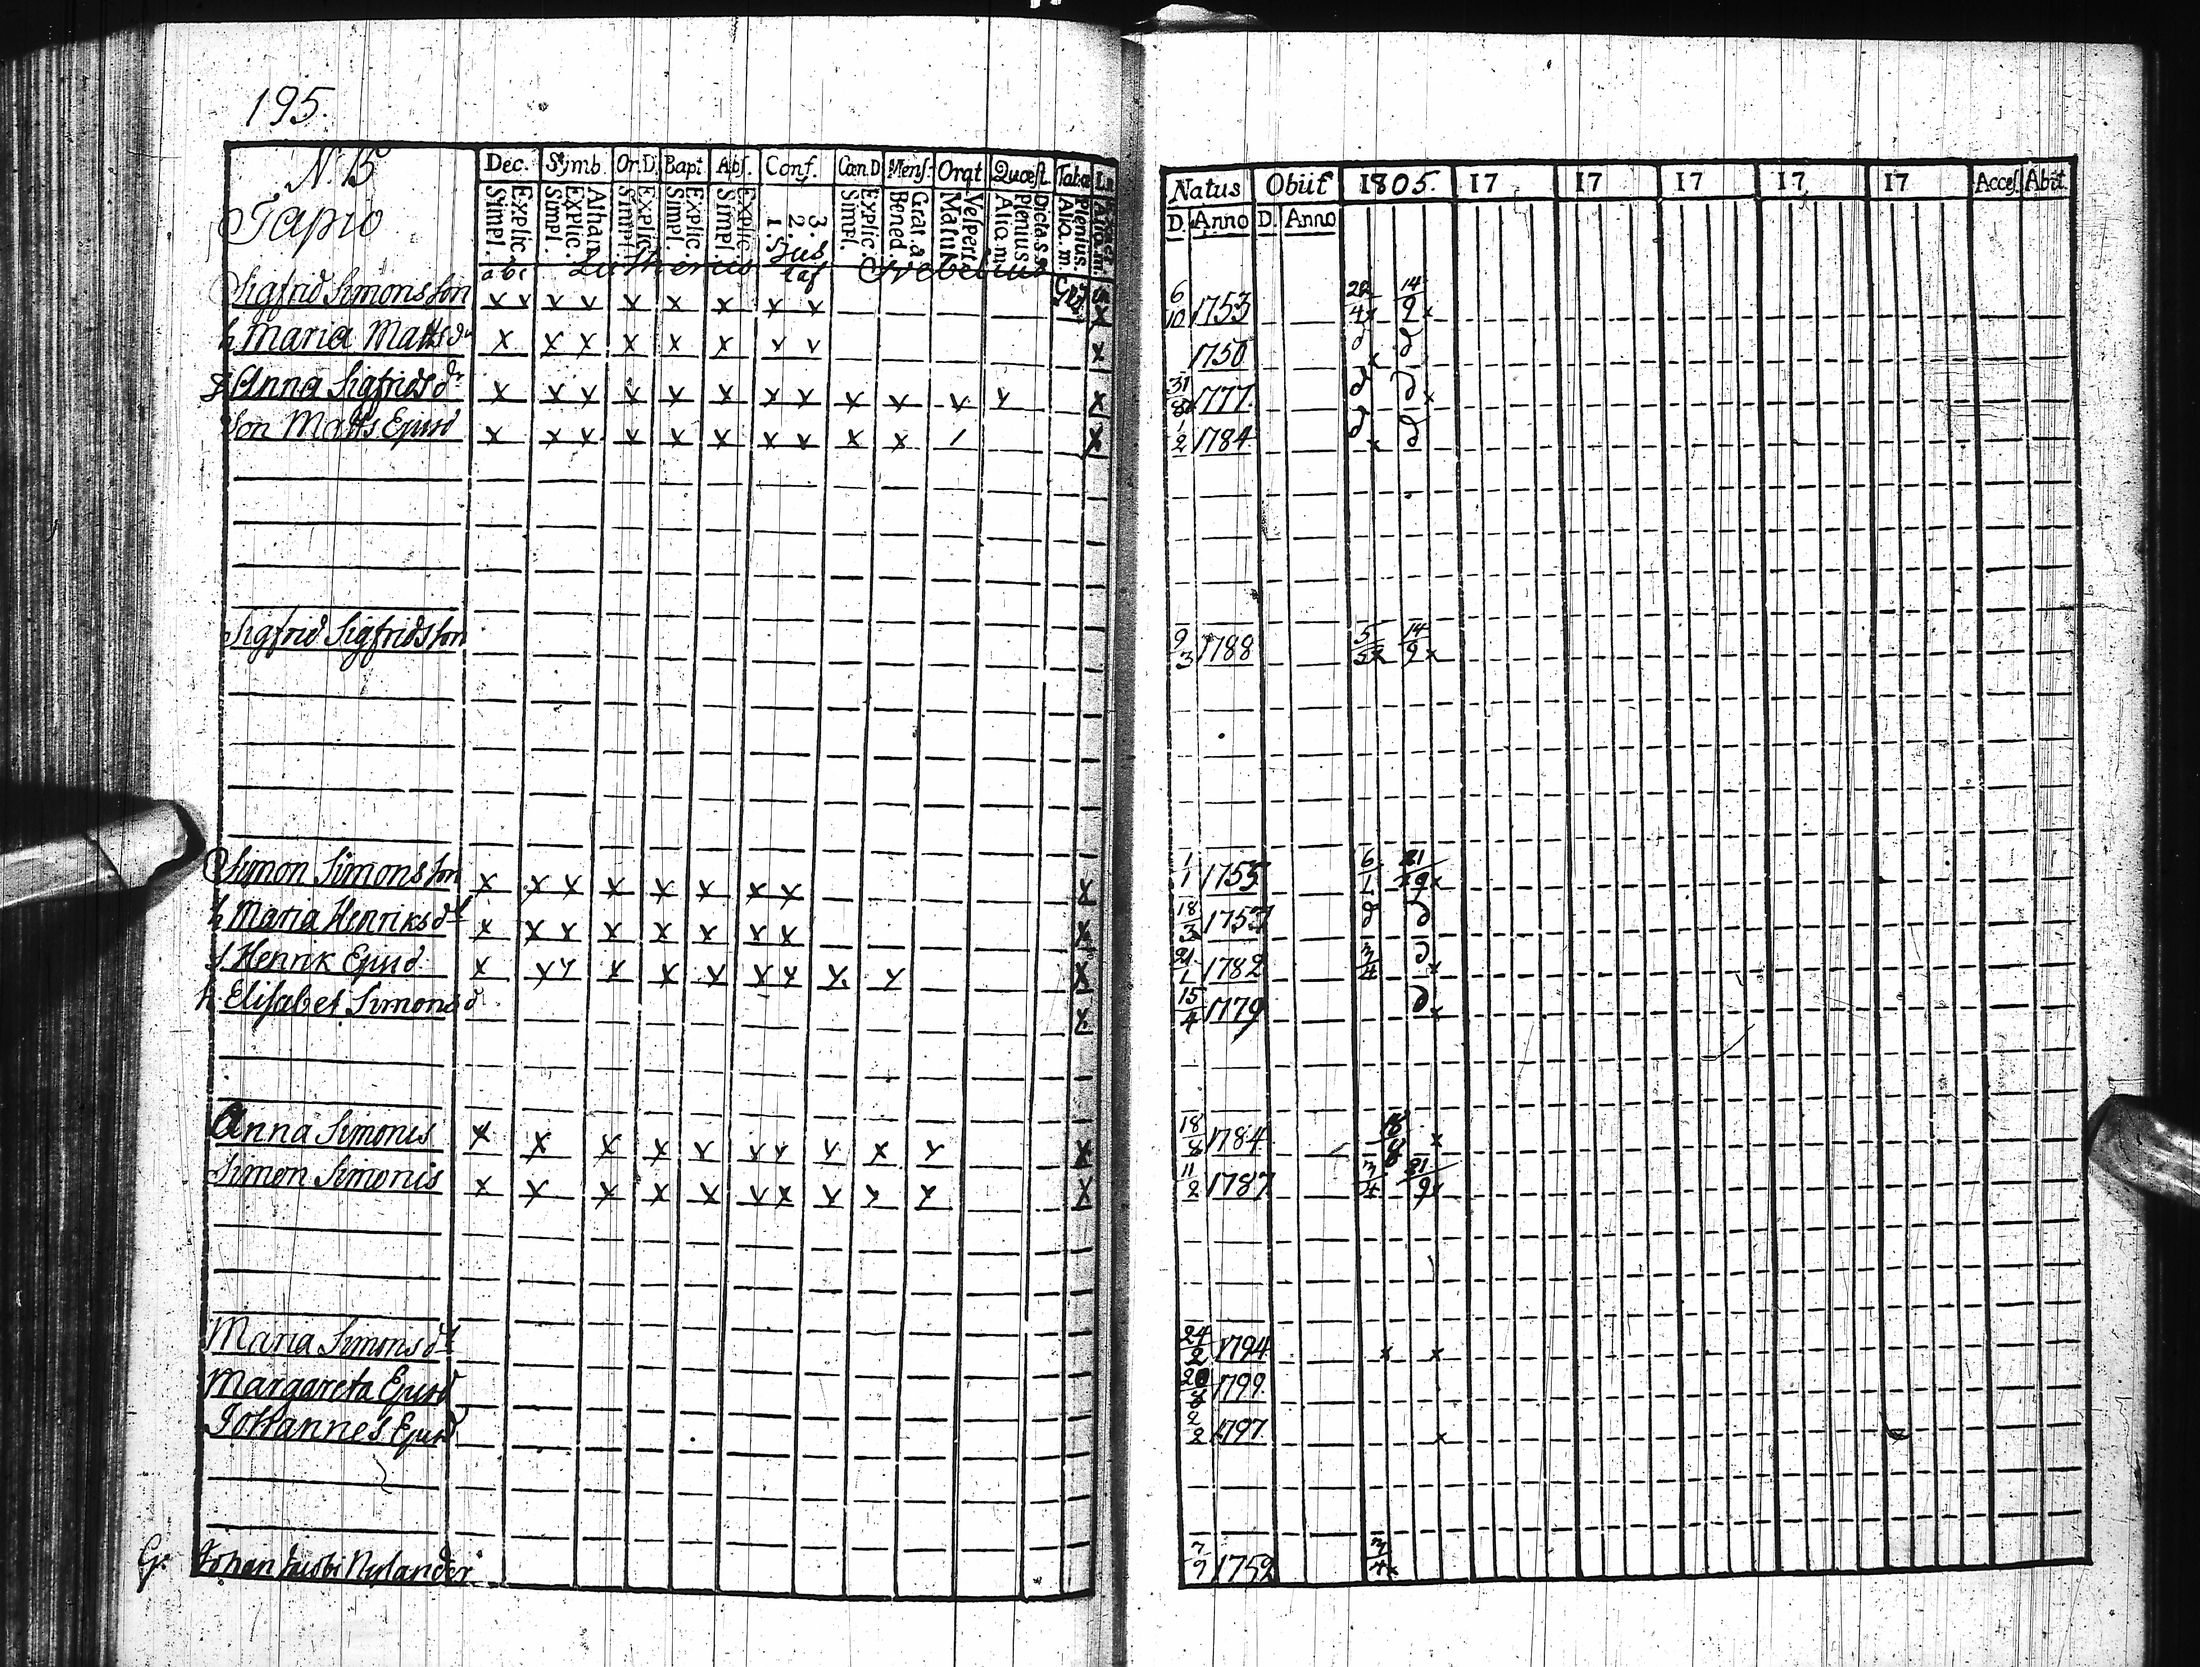 195.
N. 15
Tapio
Dec. Symb. Or.D. Bapt. Abs. Conf. Can.D. Mens. Orat. Quæst.
Simpl. Explic. Simpl. Explic. Athan. Simpl. Explic. Simpl. Explic. Simpl. Explic. 1. 2. 3. Simpl. Explic. Bened. Grat.a. Matut. Vespert. Alio.m. Plenius. Dicta.s.s. Alia.m. Plenius.
abc Lutherus Svebelius
Natus Obiit 1805. 17 17 17 17 17 Acces. Abit.
D. Anno D. Anno
Sigfrid Simonsson x x x x x x x x x x 6/10 1753 22/4 x 14/9 x
h Maria Matts dr x x x x x x v v x 1750 d x d
Anna Sigfrids dr x x x x x x x x x x x v x 31/8 1777. d d x
Son Matts Ejusd x x x x x x x x x x / x 1/2 1784 d x d
Sigfrid Sigfridsson 9/3 1788 5/5 x 14/9 x
Simon Simonsson x x x x x x x x x 1/1 1755 6/1 21/9 x
h Maria Henriksdt x x x x x x x x x 18/3 1757 d d
s. Henrik Ejusd. x x x x x x x x x x x 21/1 1782 3/4 d x
h. Elisabet Simonsd x 15/4 1779 d x
Anna Simonis x x x x x x x x x x x 18/8 1784 18/8 x
Simon Simonis x x x x x x x x x x x 11/2 1787 3/4 21/9 x
Maria Simonsdt 24/2 1794 x x
Margareta Ejusd 1799.
Johannes Ejusd 2/2 1797. x
Johan Nylander 7/9 1759 3/4 x